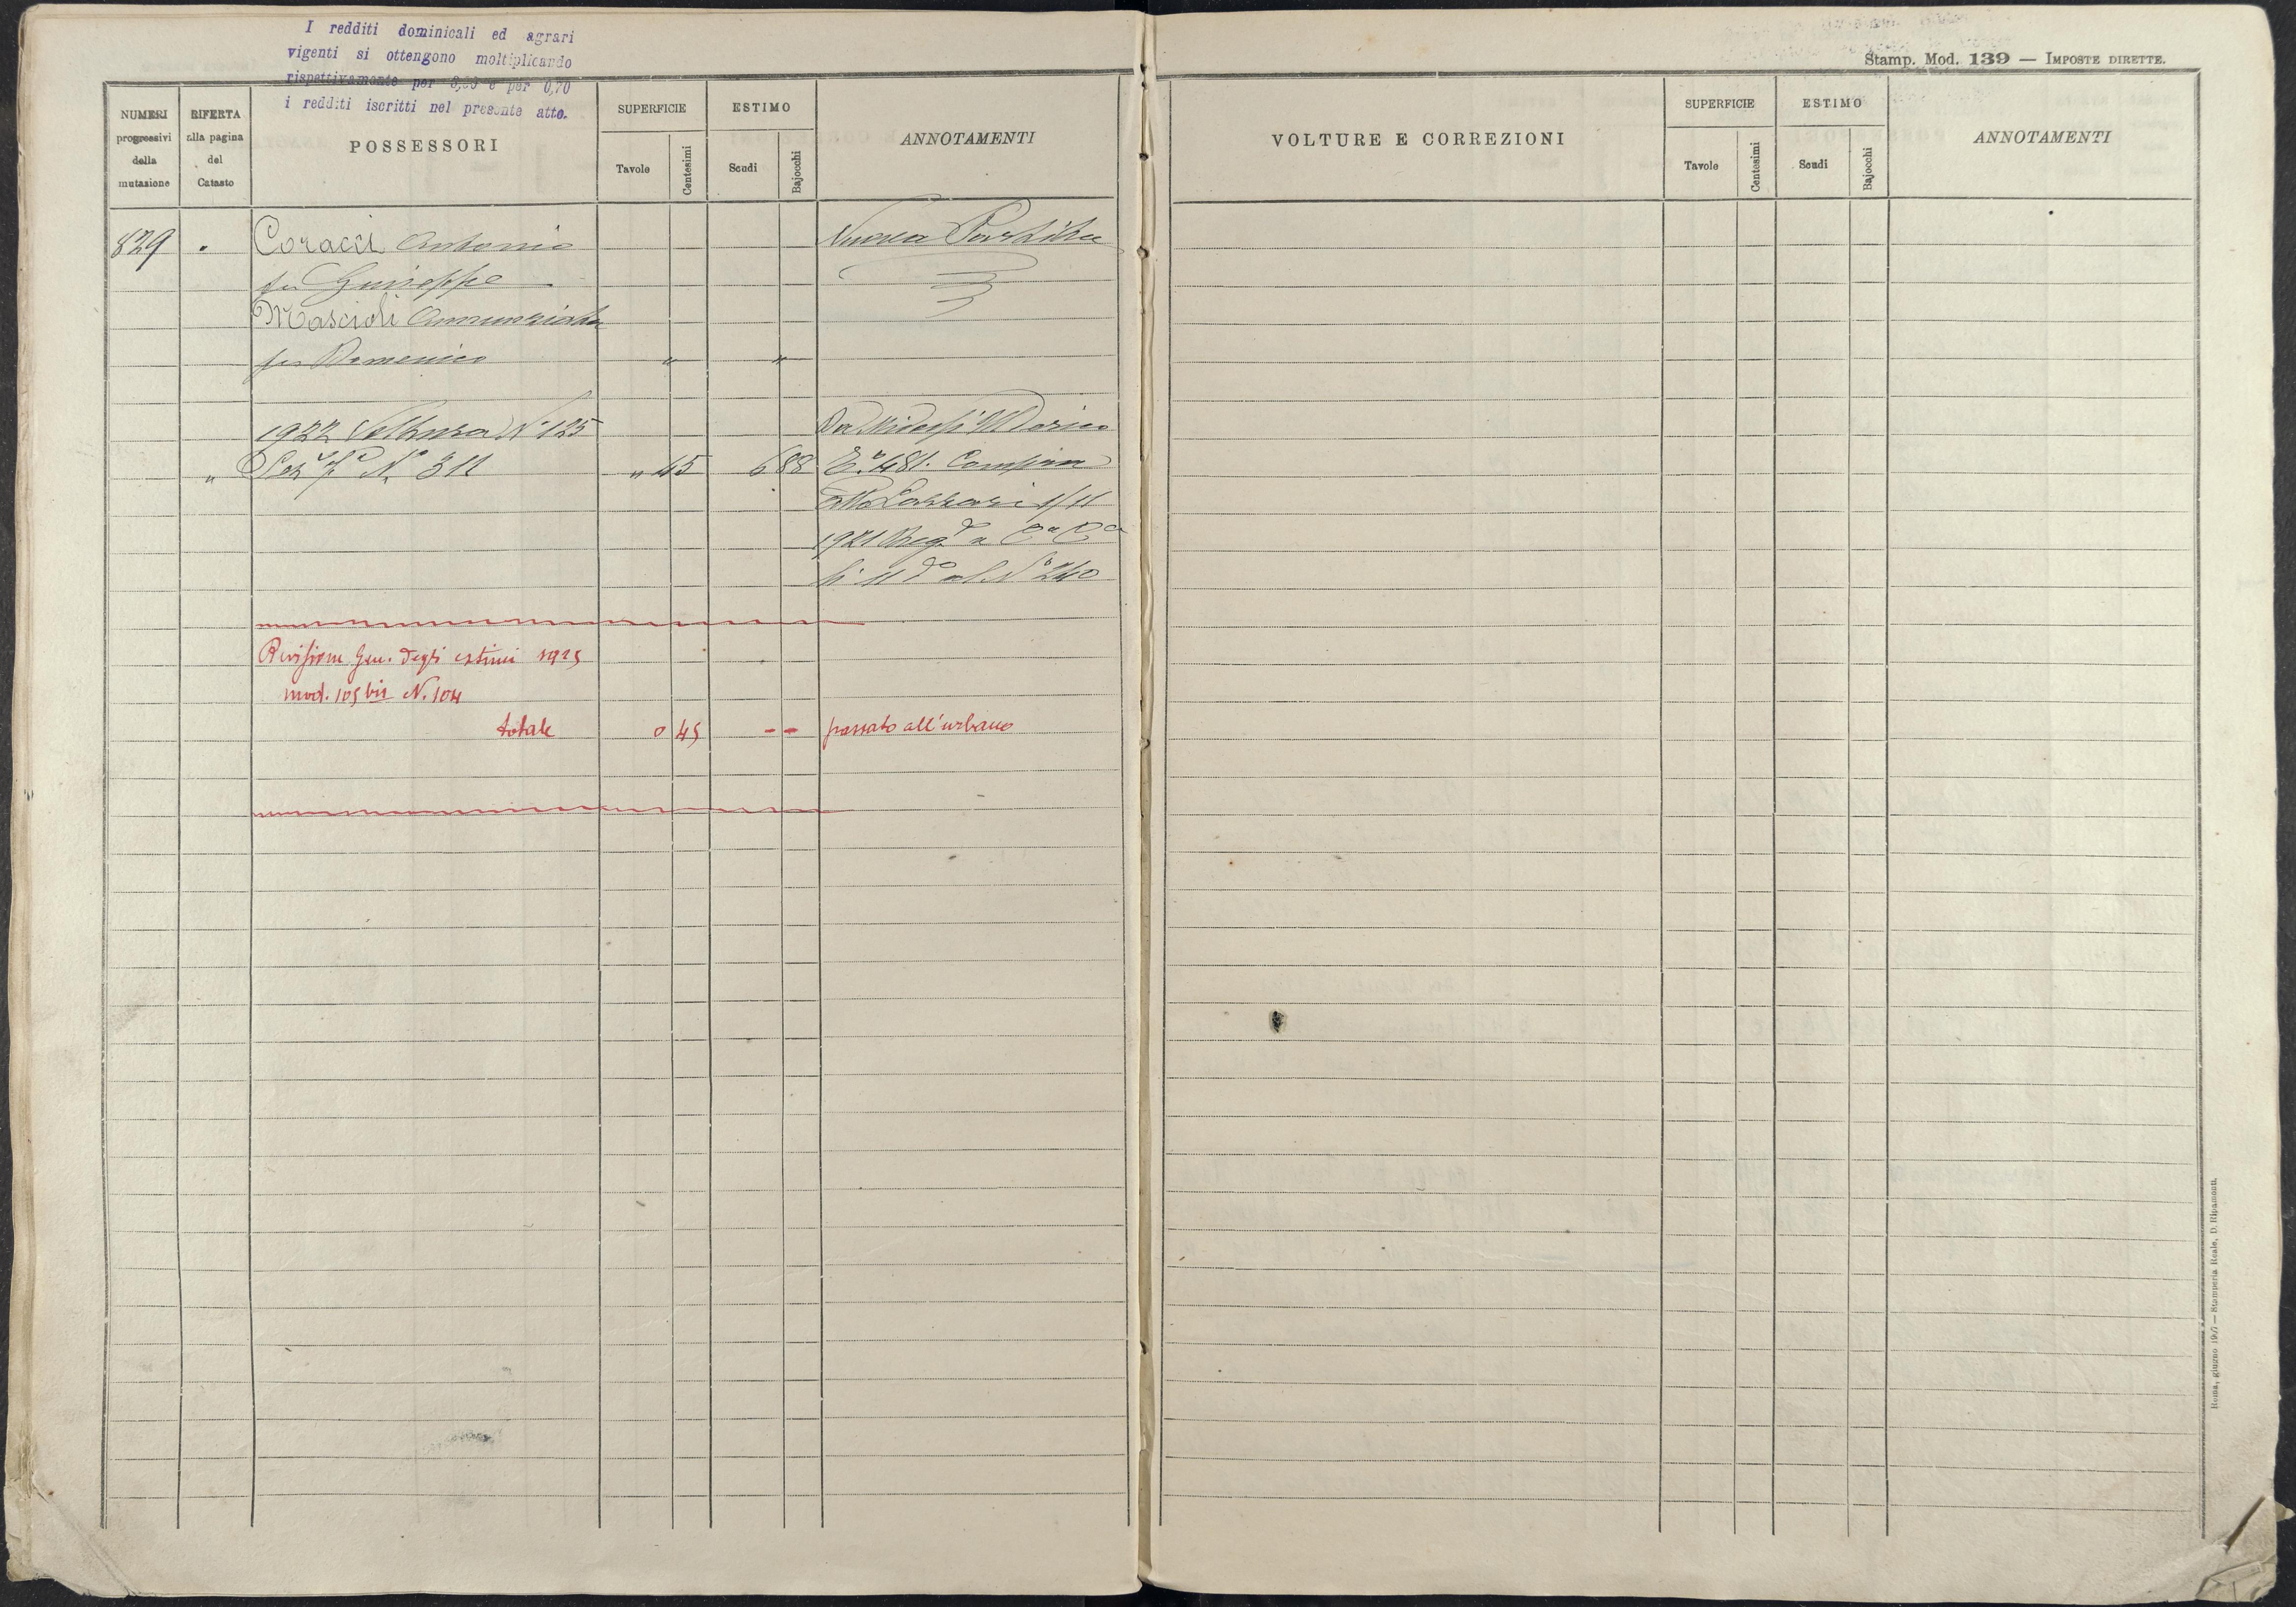 I redditi dominicali ed agrari
vigenti si ottengono moltiplicando
rispettivamente per e per 0,70
i redditi iscritti nel presente atto.
Stamp. Mod. 139 — IMPOSTE DIRETTE.
NUMERI progressivi della mutazione
RIFERTA alla pagina del Catasto
POSSESSORI
SUPERFICIE
Tavole
Centesimi
ESTIMO
Scudi
Bajocchi
ANNOTAMENTI
VOLTURE E CORREZIONI
SUPERFICIE
Tavole
Centesimi
ESTIMO
Scudi
Bajocchi
ANNOTAMENTI
829 Coracci Antonio Nuova Partita
fu Giuseppe
Mascioli Annunziata
fu Domenico " "
1922 Voltura N 125 Da
" N. 311 " 45 6 88 481. Compra
atto 1/11
1921 Reg. a
li 11 al N° 240
Revisione Gen. degli estimi 1925
mod. 105 bis N. 104
totale 0 45 - - passato all'urbano
Roma, giugno — Stamperia Reale, D. Ripamonti.